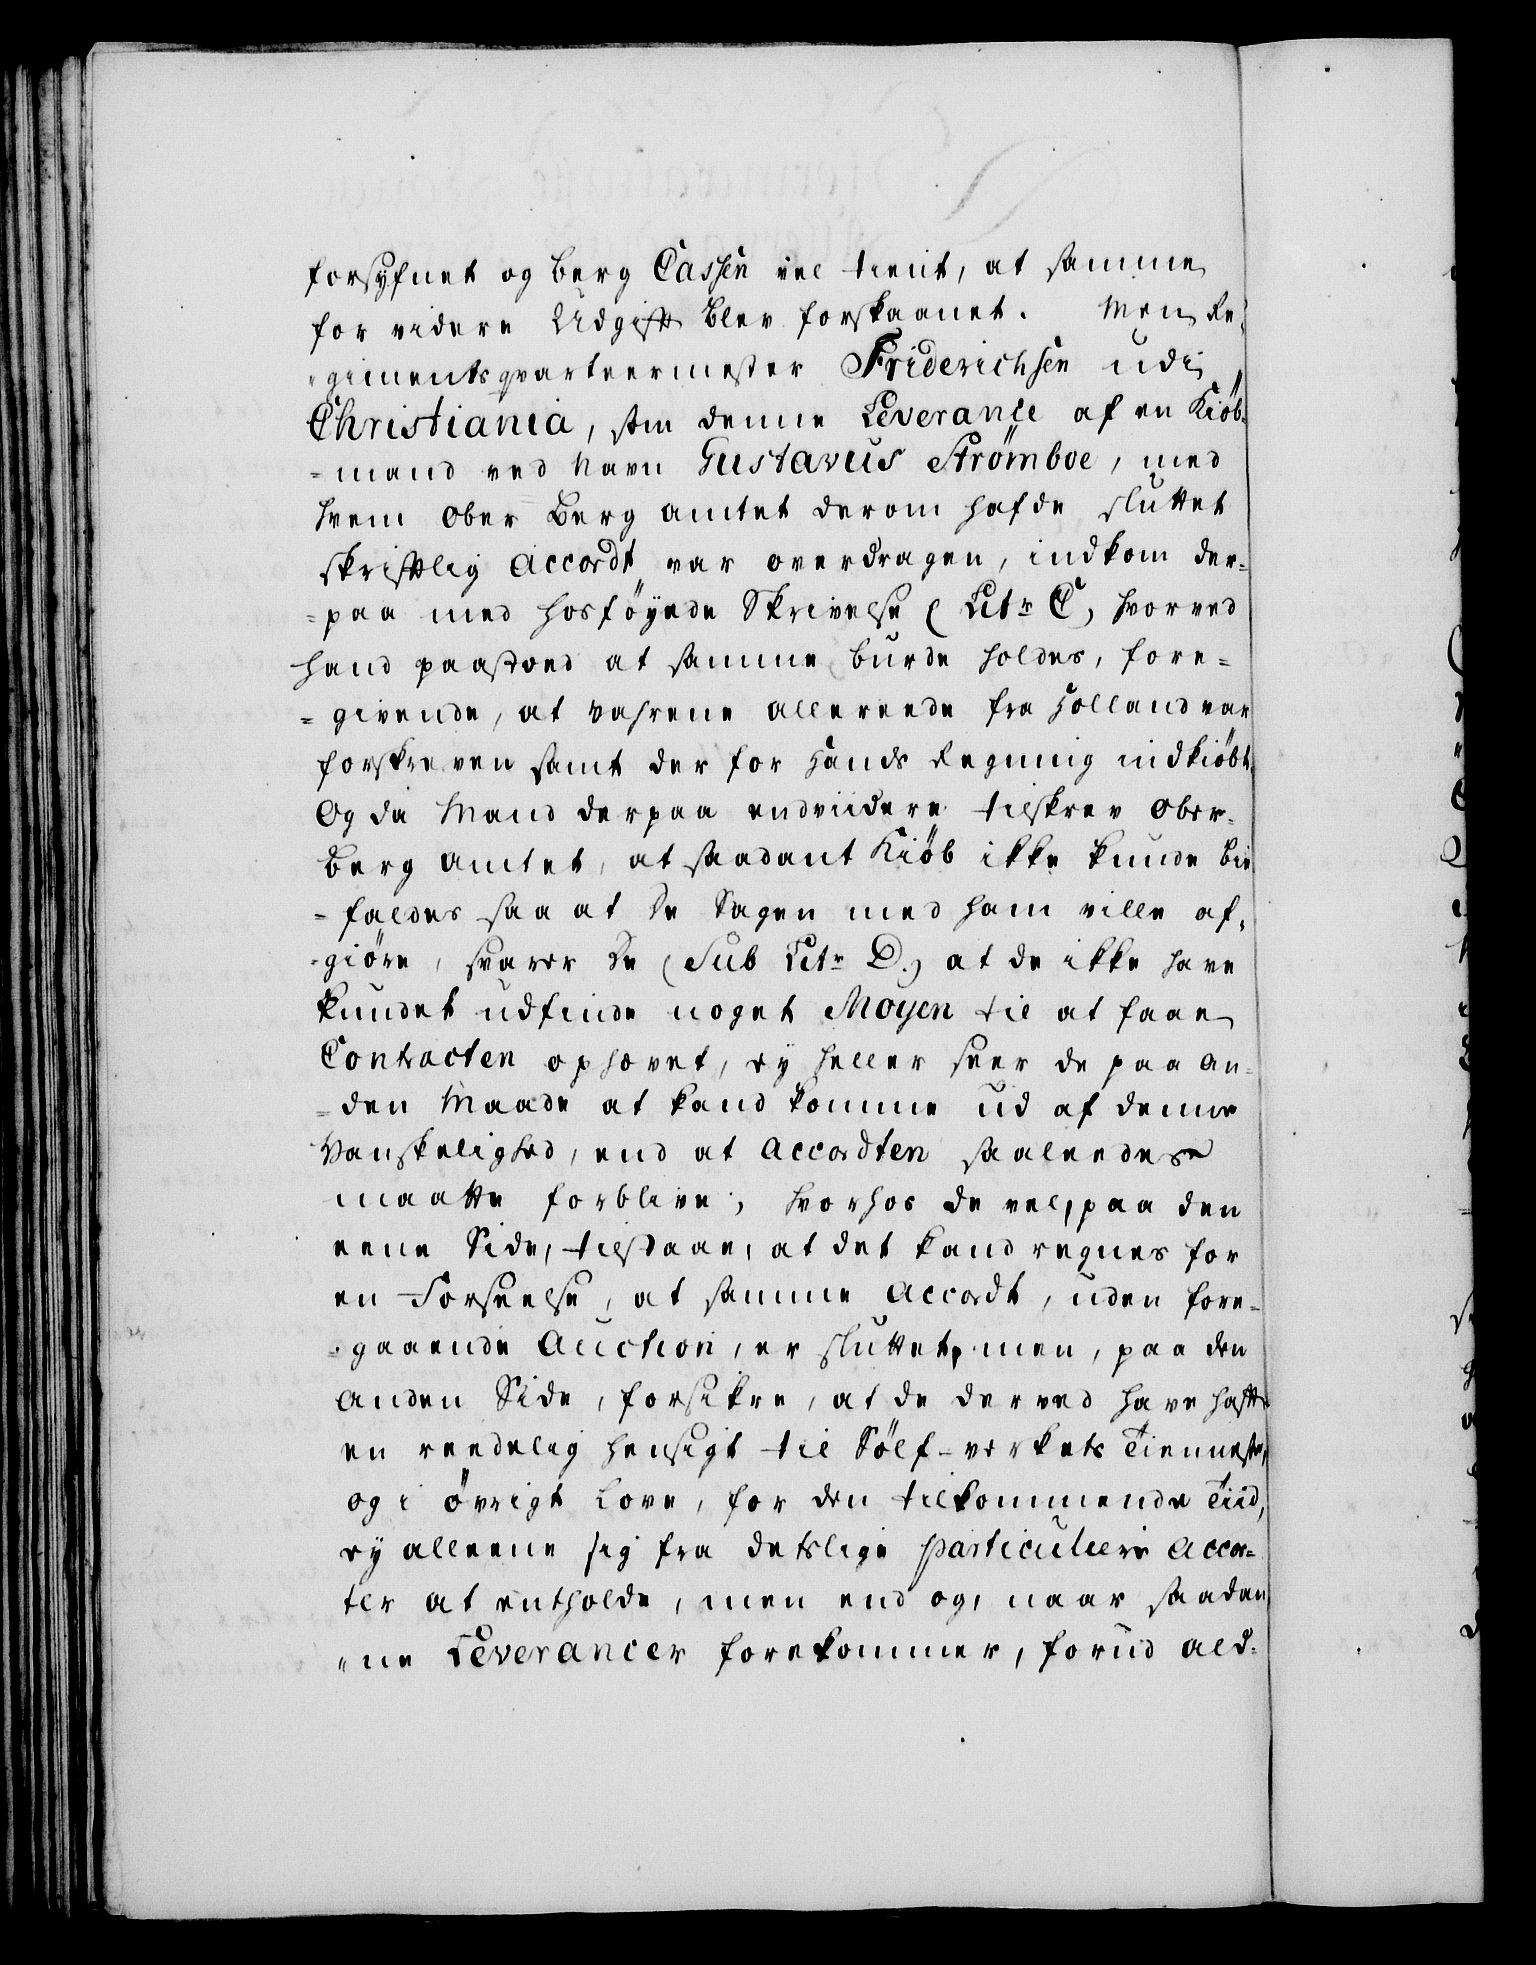 forsÿnet og Berg Cassen vel tient, at samme
for videre Udgift blev forskaanet. Men Re-
-gimentsqvarteermester Friderichsen udi
Christiania, som denne Leverance af en Kiöb-
-mand ved Navn Gustavus Strömboe, med
hvem Ober Berg Amtet derom hafde sluttet
skriftlig Accordt var overdragen, indkom der-
-paa med hosföyede Skrivelse (Litr C) hvorved
hand paastoed at samme burde holdes, fore-
-givende, at Vahrene allereede fra Holland var
forskreven samt der for Hands Regning indkiöbt.
Og da Mand derpaa endviidere tilskrev Ober-
Berg Amtet, at saadant Kiöb ikke kunde bie
-faldes saa at De Sagen med ham ville af-
-giöre, svarer De (Sub Litr D.) at de ikke have
kundet udfinde noget Moyen til at faae
Contracten ophævet, ey heller seer de paa an-
-den Maade at kand komme ud af denne
Vanskelighed, end at Accordten saaleedes
maatte forblive; hvorhos de vel, paa den
eene Side, tilstaae, at det kand regnes for
en Forseelse, at samme Accordt, uden fore-
-gaaende Auction, er sluttet, men, paa den
anden Side, forsikre, at de derved have haft
en reedelig hensigt til Sölf-verkets Tienneste,
og i övrigt love, for den tilkommende Tiid,
ey alleene sig fra detslige particulere Accor-
ter at entholde, men end og, naar saadan
-ne Leverancer forekommer, forud ald-